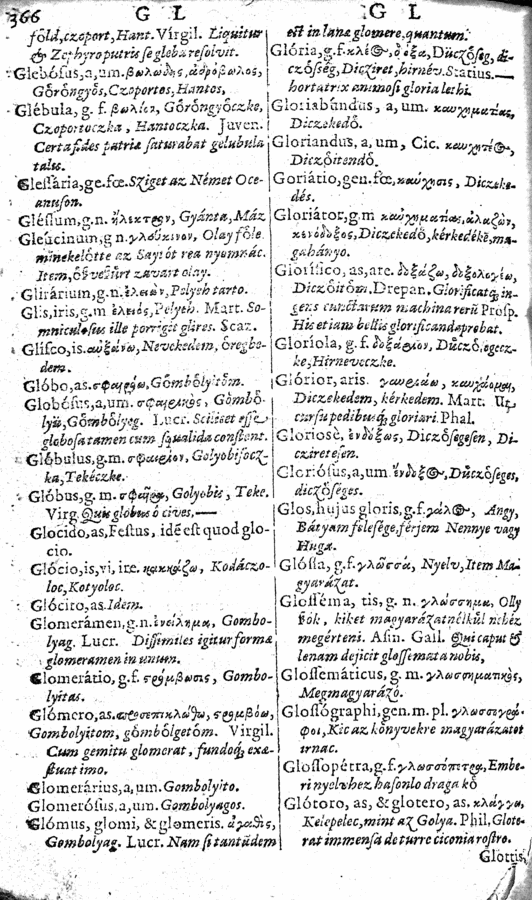 366
G L
föld, czoport, Hant. Virgil. Liquitur
& Zephyro putris se gleba resolvit.
Glebósus, a, um. βωλώδης, ἁδρόβωλος,
Göröngyös, Czoportos, Hantos,
Glébula, g. f. βωλίον, Göröngyöczke,
Czoportoczka, Hantoczka. Juven.
Certa fides patriæ saturabat glebula
talis.
Glessária, ge. fœ. Sziget az Német Oce-
anuson.
Gléssum, g. n. ἤλεκτρον, Gyánta, Máz
Gleucinum, g n. γλεύκινον, Olay föle
minekelötte az Saytót rea nyomnác.
Item, zavart olay.
Glirárium, g. n. Pelyh tarto.
Glis, iris, g. m ἐλειός, Pelyh. Mart. So-
mniculosus ille porrigit glires. Scaz.
Glisco, is. αὐξάνω, Nevekedem, öregbe-
dem.
Glóbo, as. σφαιρόω, Gömbölyitöm.
Globósus, a, um. σφαιρικὸς, Gömbö-
lyü, Gömbölyeg. Lucr. Scilicet esse
globosa tamen cum squalida constent.
Glóbulus, g. m. σφαιρίον, Golyobisocz-
ka, Tekéczke.
Glóbus, g. m. σφαῖρα, Golyobis, Teke.
Virg. Quis globus ô cives, —
Glocido, as, Festus, idē est quod glo-
cio.
Glócio, is, vi, ire. κακκάζω, Kodáczo-
loc, Kotyoloc.
Glócito, as. Idem.
Glomerámen, g. n. ἐνείλημα, Gombo-
lyag. Lucr. Dissimiles igitur formæ
glomeramen in unum.
Glomerátio, g. f. στρόμβωσις, Gombo-
lyitas.
Glómero, as. στρομβόω,
Gombolyitom, gömbölgetöm. Virgil.
Cum gemitu glomerat, fundoq; exæ-
stuat imo.
Glomerárius, a, um. Gombolyito.
Glomerósus, a, um. Gombolyagos.
Glómus, glomi, & glomeris. ἀγαθὶς,
Gombolyag. Lucr. Nam si tantūdem
G L
est in lanæ glomere, quantum.
Glória, g. f. κλέος, δόξα, Düczöseg, di-
czösség, Dicziret, hirnév. Statius. —
hortatrix animosi gloria lethi.
Gloriabúndus, a, um. καυχηματίας,
Diczekedö.
Gloriandus, a, um, Cic. καυχητέος,
Diczöitendö.
Goriátio, gen. fœ, καύχησις, Diczeke-
dés.
Gloriátor, g. m καυχηματίας, ἀλαζών,
κενόδοξος, Diczekedö, kérkedékē, ma-
gahányo.
Glorífico, as, are. δοξάζω, δοξολογέω,
Diczöitöm, Drepan. Glorificatq; in-
gens cunctarum machina rerū Prosp.
His etiam bellis glorificanda probat.
Gloriola, g. f. δοξάριον, Düczösegecz-
ke, Hirneveczke.
Glórior, aris. γαυριάω, καυχάομαι,
Diczekedem, kérkedem. Mart. Ut
cursu pedibusq; gloriari. Phal.
Gloriosè, ἐνδόξως, Diczösegesen, Di-
cziretesen.
Gloriósus, a, um ἔνδοξος, Düczöseges,
diczöséges.
Glos, hujus gloris, g. f. γάλως, Angy,
Bátyam felesége, férjem Nennye vagy
Huga.
Glóssa, g. f. γλῶσσα, Nyelv, Item Ma-
gyarázat.
Glosséma, tis, g. n. γλώσσημα, Olly
szók, kiket magyarázat nélkül nehéz
megérteni. Asin. Gall. Qui caput &
lenam dejicit glossemata nobis,
Glossemáticus, g. m. γλωσσηματικὸς,
Megmagyarázo.
Glossógraphi, gen. m. pl. γλωσσογρά-
φοι, Kic az könyvekre magyarázatot
irnac.
Glossopétra, g. f. γλωσσόπετρα, Embe-
ri nyelvhez hasonlo draga kö
Glótoro, as, & glotero, as. κλάγγω,
Kelepelec, mint az Golya. Phil. Glote-
rat immensa de turre ciconia rostro.
Glottis,